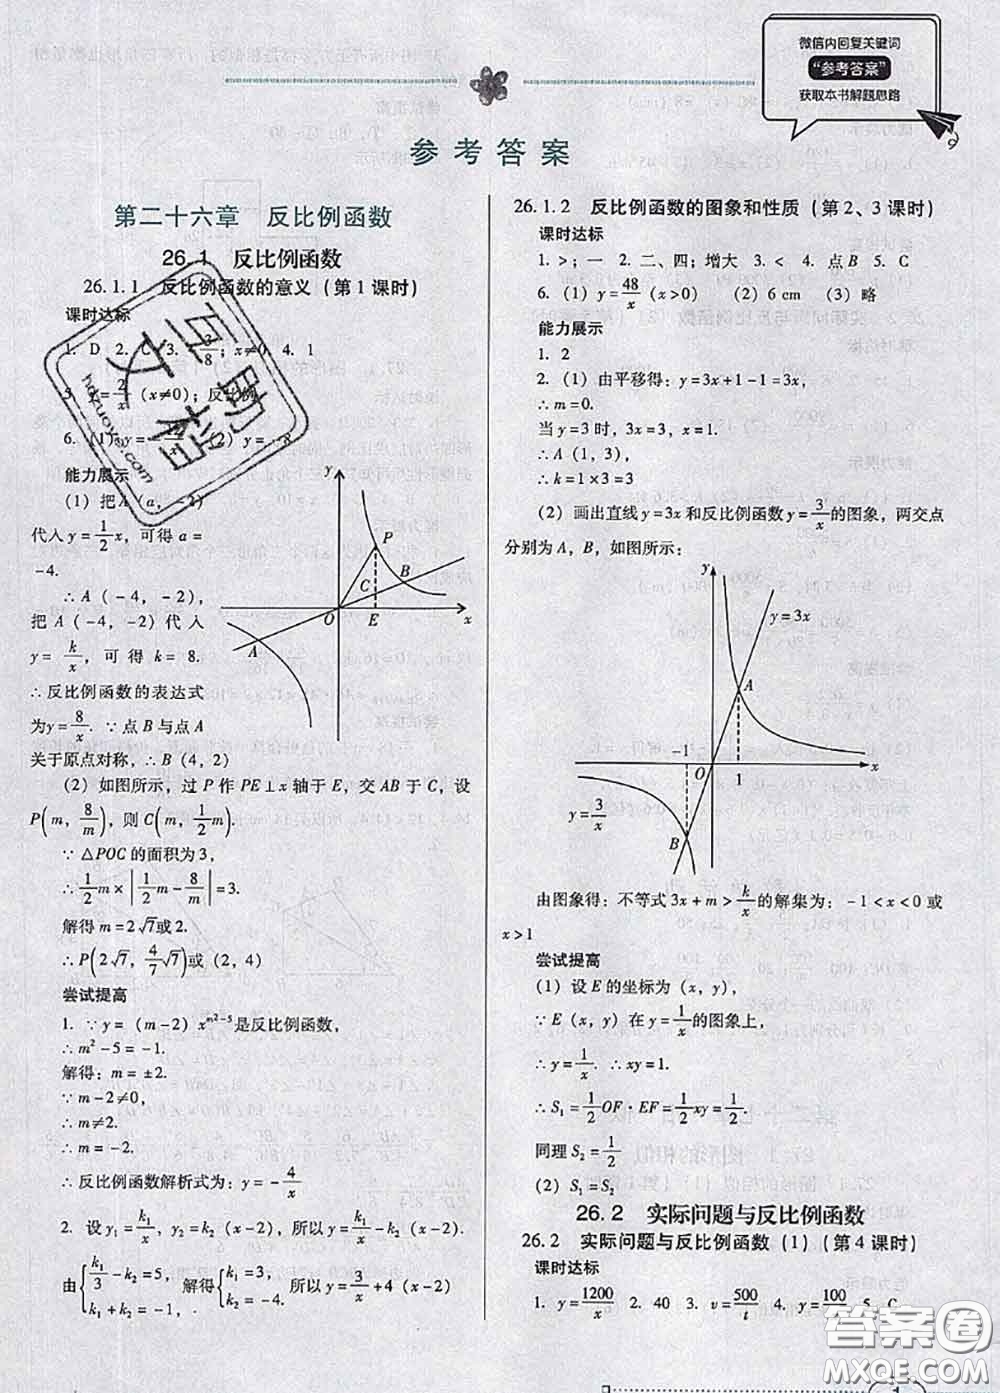 微信内回复关键词
"参考答案"
获取本书解题思路
参考答案
第二十六章 反比例函数
26.1 反比例函数
26.1.1 反比例函数的意义(第1课时)
课时达标
1. D 2. C 3. 3/8; x≠0 4. 1
y=2/x (x≠0); 反比例
6. (1) y= (2) y=
能力展示
(1) 把A (a, -2)
代入 y=1/2x, 可得 a=
-4.
∴A (-4, -2),
把A (-4, -2) 代入
y=k/x, 可得 k=8.
∴反比例函数的表达式
为y=8/x. ∵点B与点A
关于原点对称, ∴B (4, 2)
y
P
C
B
O
E
x
A
(2) 如图所示, 过P作PE⊥x轴于E, 交AB于C, 设
P(m, 8/m), 则C(m, 1/2m).
∵△POC的面积为3,
∴1/2m×|1/2m-8/m|=3.
解得m=2√7或2.
∴P(2√7, 4/7√7)或 (2, 4)
尝试提高
1. ∵y= (m-2) x^(m²-5)是反比例函数,
∴m²-5=-1.
解得: m=±2.
∵m-2≠0,
∴m≠2.
∴m=-2.
∴反比例函数解析式为: y=-4/x
2. 设y₁=k₁/x, y₂=k₂ (x-2), 所以y=k₁/x-k₂ (x-2)
由{k₁/3-k₂=5, k₁+k₂=-1, 解得{k₁=3, k₂=-4. 所以y=3/x+4 (x-2)
26.1.2 反比例函数的图象和性质(第2、3课时)
课时达标
1. >; 一 2. 二、四; 增大 3. < 4. 点B 5. C
6. (1) y=48/x (x>0) (2) 6 cm (3) 略
能力展示
1. 2
2. (1) 由平移得: y=3x+1-1=3x,
∴m=0.
当y=3时, 3x=3, x=1.
∴A (1, 3),
∴k=1×3=3
(2) 画出直线y=3x和反比例函数y=3/x的图象, 两交点
分别为A, B, 如图所示:
y
y=3x
A
-1
O
1
x
y=3/x
B
由图象得: 不等式3x+m>k/x的解集为: -1<x<0或
x>1
尝试提高
(1) 设E的坐标为 (x, y),
∵E (x, y) 在y=1/x的图象上,
∴y=1/x. ∴xy=1.
∴S₁=1/2OF·EF=1/2xy=1/2.
同理S₂=1/2
(2) S₁=S₂
26.2 实际问题与反比例函数
26.2 实际问题与反比例函数(1)(第4课时)
课时达标
1. y=1200/x 2. 40 3. v=500/t 4. y=100/x 5. C
互助文档
hdzuoye.com
答案圈
MXQE.COM